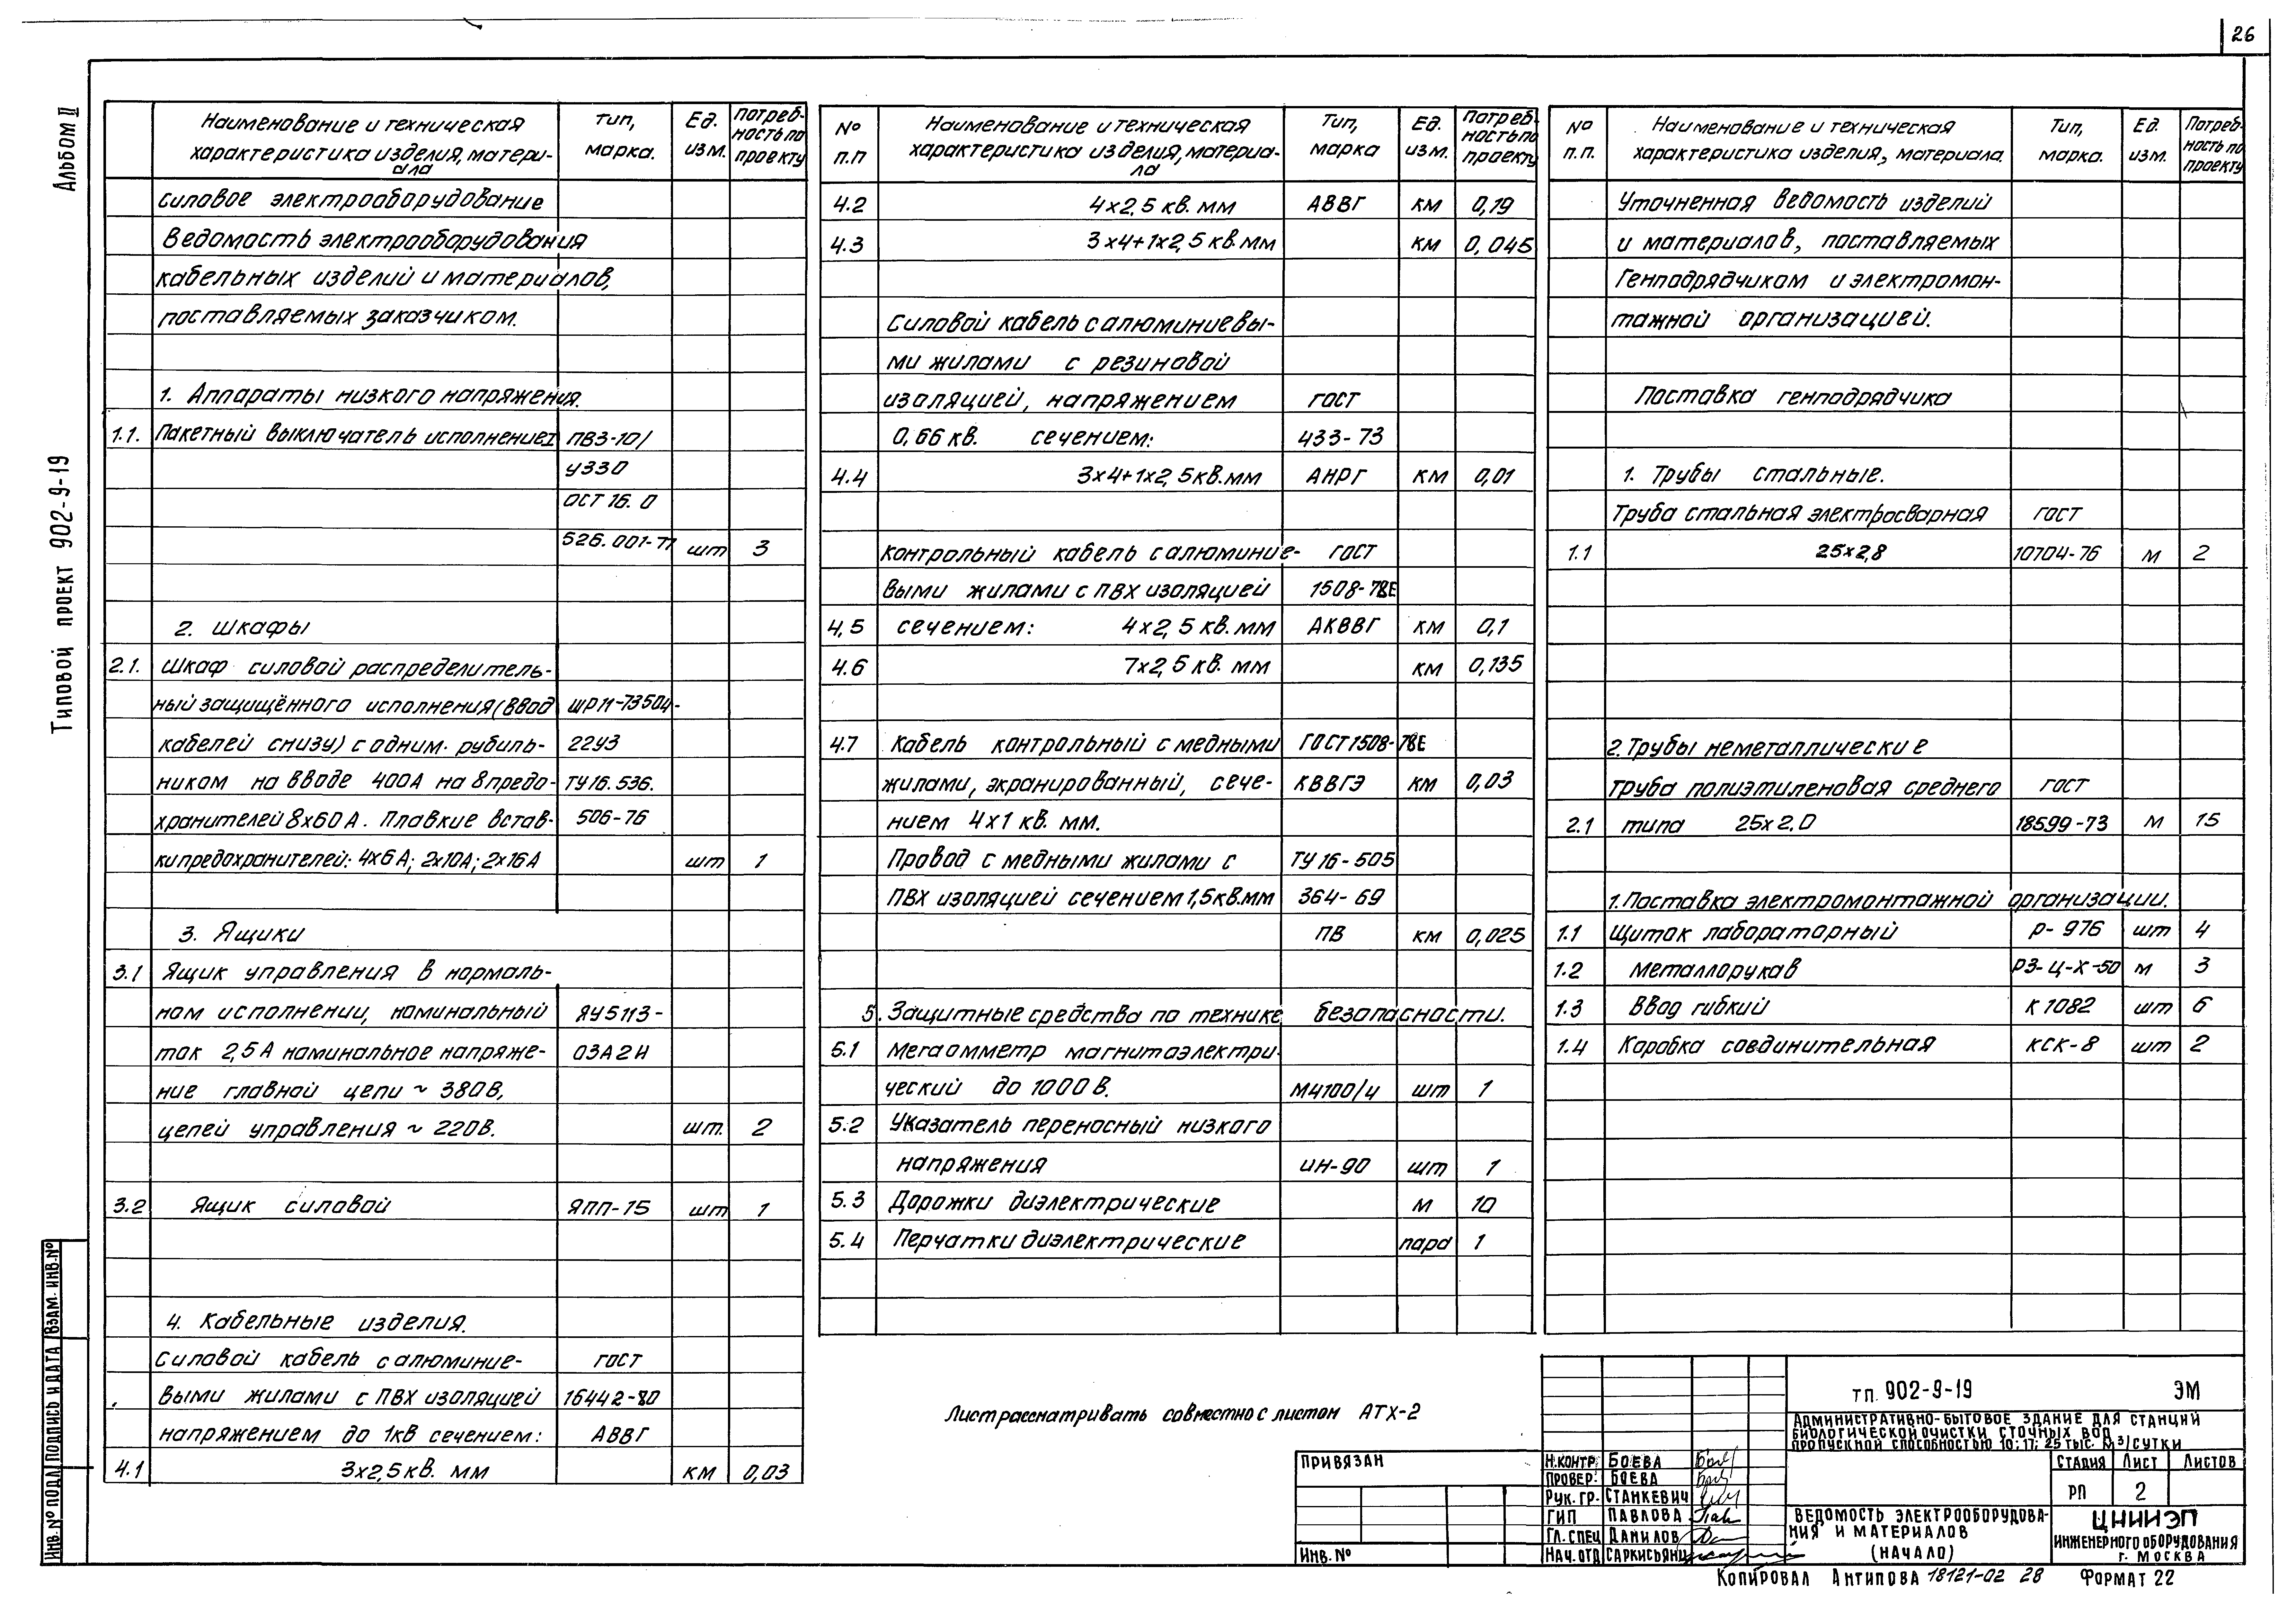 26
Альбом II
Типовой проект 902-9-19
Наименование и техническая характеристика изделия, материала | Тип, марка. | Ед. изм. | Потребность по проекту
Силовое электрооборудование
Ведомость электрооборудования
кабельных изделий и материалов,
поставляемых заказчиком.
1. Аппараты низкого напряжения.
1.1. Пакетный выключатель исполнение I ПВ3-10/
У330
ОСТ 16. 0
526.001-77 шт 3
2. Шкафы
2.1. Шкаф силовой распределитель-
ный защищённого исполнения (ввод ШР11-73504-
кабелей снизу) с одним рубиль- 22У3
ником на вводе 400А на 8 предо- ТУ16.536.
хранителей 8х60А. Плавкие встав- 506-76
ки предохранителей: 4х6А; 2х10А; 2х16А шт 1
3. Ящики
3.1 Ящик управления в нормаль-
ном исполнении, номинальный ЯУ5113-
ток 2,5А номинальное напряже- 03А2И
ние главной цепи ~ 380В,
цепей управления ~ 220В. шт. 2
3.2 Ящик силовой ЯПП-15 шт 1
4. Кабельные изделия.
Силовой кабель с алюминие- ГОСТ
выми жилами с ПВХ изоляцией 16442-80
напряжением до 1кВ сечением: АВВГ
4.1 3х2,5 кв. мм км 0,03
№ п.п | Наименование и техническая характеристика изделия, материала | Тип, марка | Ед. изм. | Потребность по проекту
4.2 4х2,5 кв. мм АВВГ км 0,19
4.3 3х4+1х2,5 кв. мм км 0,045
Силовой кабель с алюминиевы-
ми жилами с резиновой
изоляцией, напряжением ГОСТ
0,66 кв. сечением: 433-73
4.4 3х4+1х2,5 кв. мм АНРГ км 0,01
Контрольный кабель с алюминие- ГОСТ
выми жилами с ПВХ изоляцией 1508-78Е
4,5 сечением: 4х2,5 кв. мм АКВВГ км 0,1
4.6 7х2,5 кв. мм км 0,135
4.7 Кабель контрольный с медными ГОСТ 1508-78Е
жилами, экранированный, сече- КВВГЭ км 0,03
нием 4х1 кв. мм.
Провод с медными жилами с ТУ 16-505
ПВХ изоляцией сечением 1,5 кв.мм 364-69
ПВ км 0,025
5. Защитные средства по технике безопасности.
5.1 Мегаомметр магнитоэлектри-
ческий до 1000 В. М4100/4 шт 1
5.2 Указатель переносный низкого
напряжения ИН-90 шт 1
5.3 Дорожки диэлектрические м 10
5.4 Перчатки диэлектрические пара 1
№ п.п. | Наименование и техническая характеристика изделия, материала. | Тип, марка. | Ед. изм. | Потребность по проекту
Уточненная ведомость изделий
и материалов, поставляемых
Генподрядчиком и электромон-
тажной организацией.
Поставка генподрядчика
1. Трубы стальные.
Труба стальная электросварная ГОСТ
1.1 25х2,8 10704-76 м 2
2. Трубы неметаллические
Труба полиэтиленовая среднего ГОСТ
2.1 типа 25х2,0 18599-73 м 15
1. Поставка электромонтажной организации.
1.1 Щиток лабораторный Р-976 шт 4
1.2 Металлорукав РЗ-Ц-Х-50 м 3
1.3 Ввод гибкий К 1082 шт 6
1.4 Коробка соединительная КСК-8 шт 2
Лист рассматривать совместно с листом АТХ-2
Привязан
Инв. №
Н.контр. Боева
Провер. Боева
Рук. гр. Станкевич
ГИП Павлова
Гл. спец Данилов
Нач. отд Саркисьянц
тп. 902-9-19 ЭМ
Административно-бытовое здание для станций
биологической очистки сточных вод
пропускной способностью 10; 17; 25 тыс. м3/сутки
Стадия Лист Листов
РП 2
Ведомость электрооборудова-
ния и материалов
(начало)
ЦНИИЭП
инженерного оборудования
г. Москва
Копировал Антипова 18121-02 28 Формат 22
Инв. № подл Подпись и дата Взам. инв. №